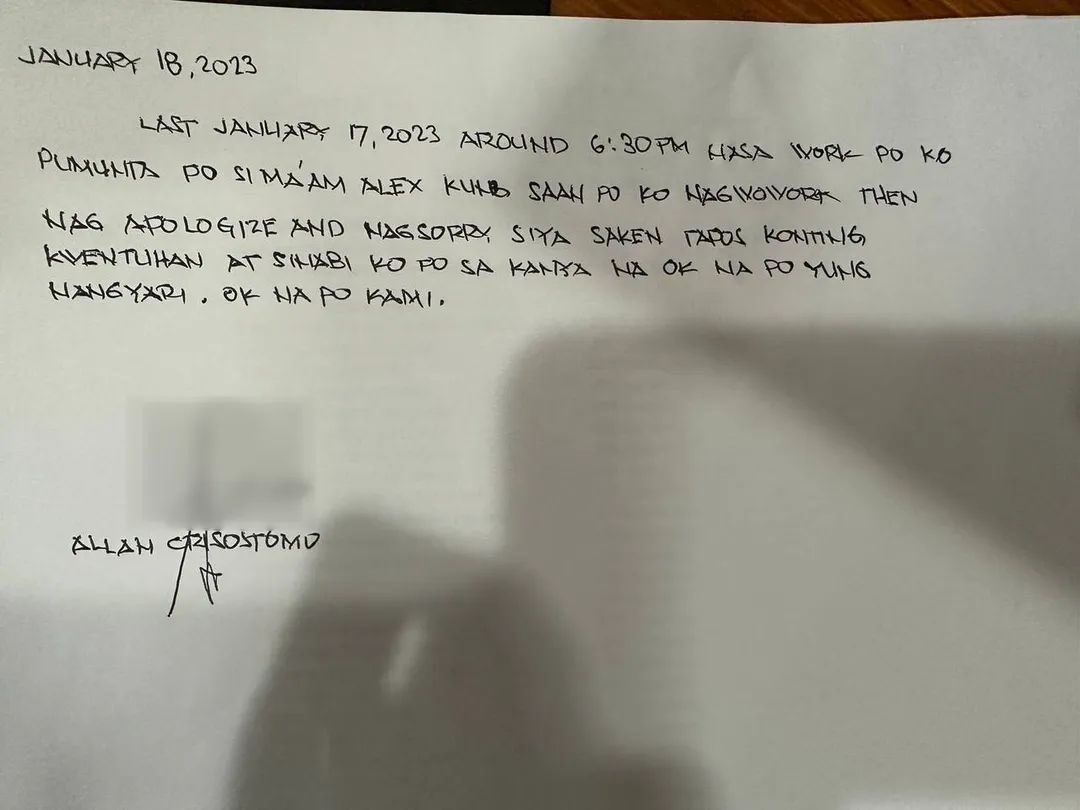 JANUARY 18,2023
LAST JANUARY 17,2023 AROUND 6:30PM NASA WORK PO KO
PUMUNTA PO SI MA'AM ALEX KUNG SAAN PO KO NAGWOWORK THEN
NAG APOLOGIZE AND NAGSORRY SIYA SAKEN TAPOS KONTING
KWENTUHAN AT SINABI KO PO SA KANYA NA OK NA PO YUNG
NANGYARI. OK NA PO KAMI.
ALLAN CRISOSTOMO